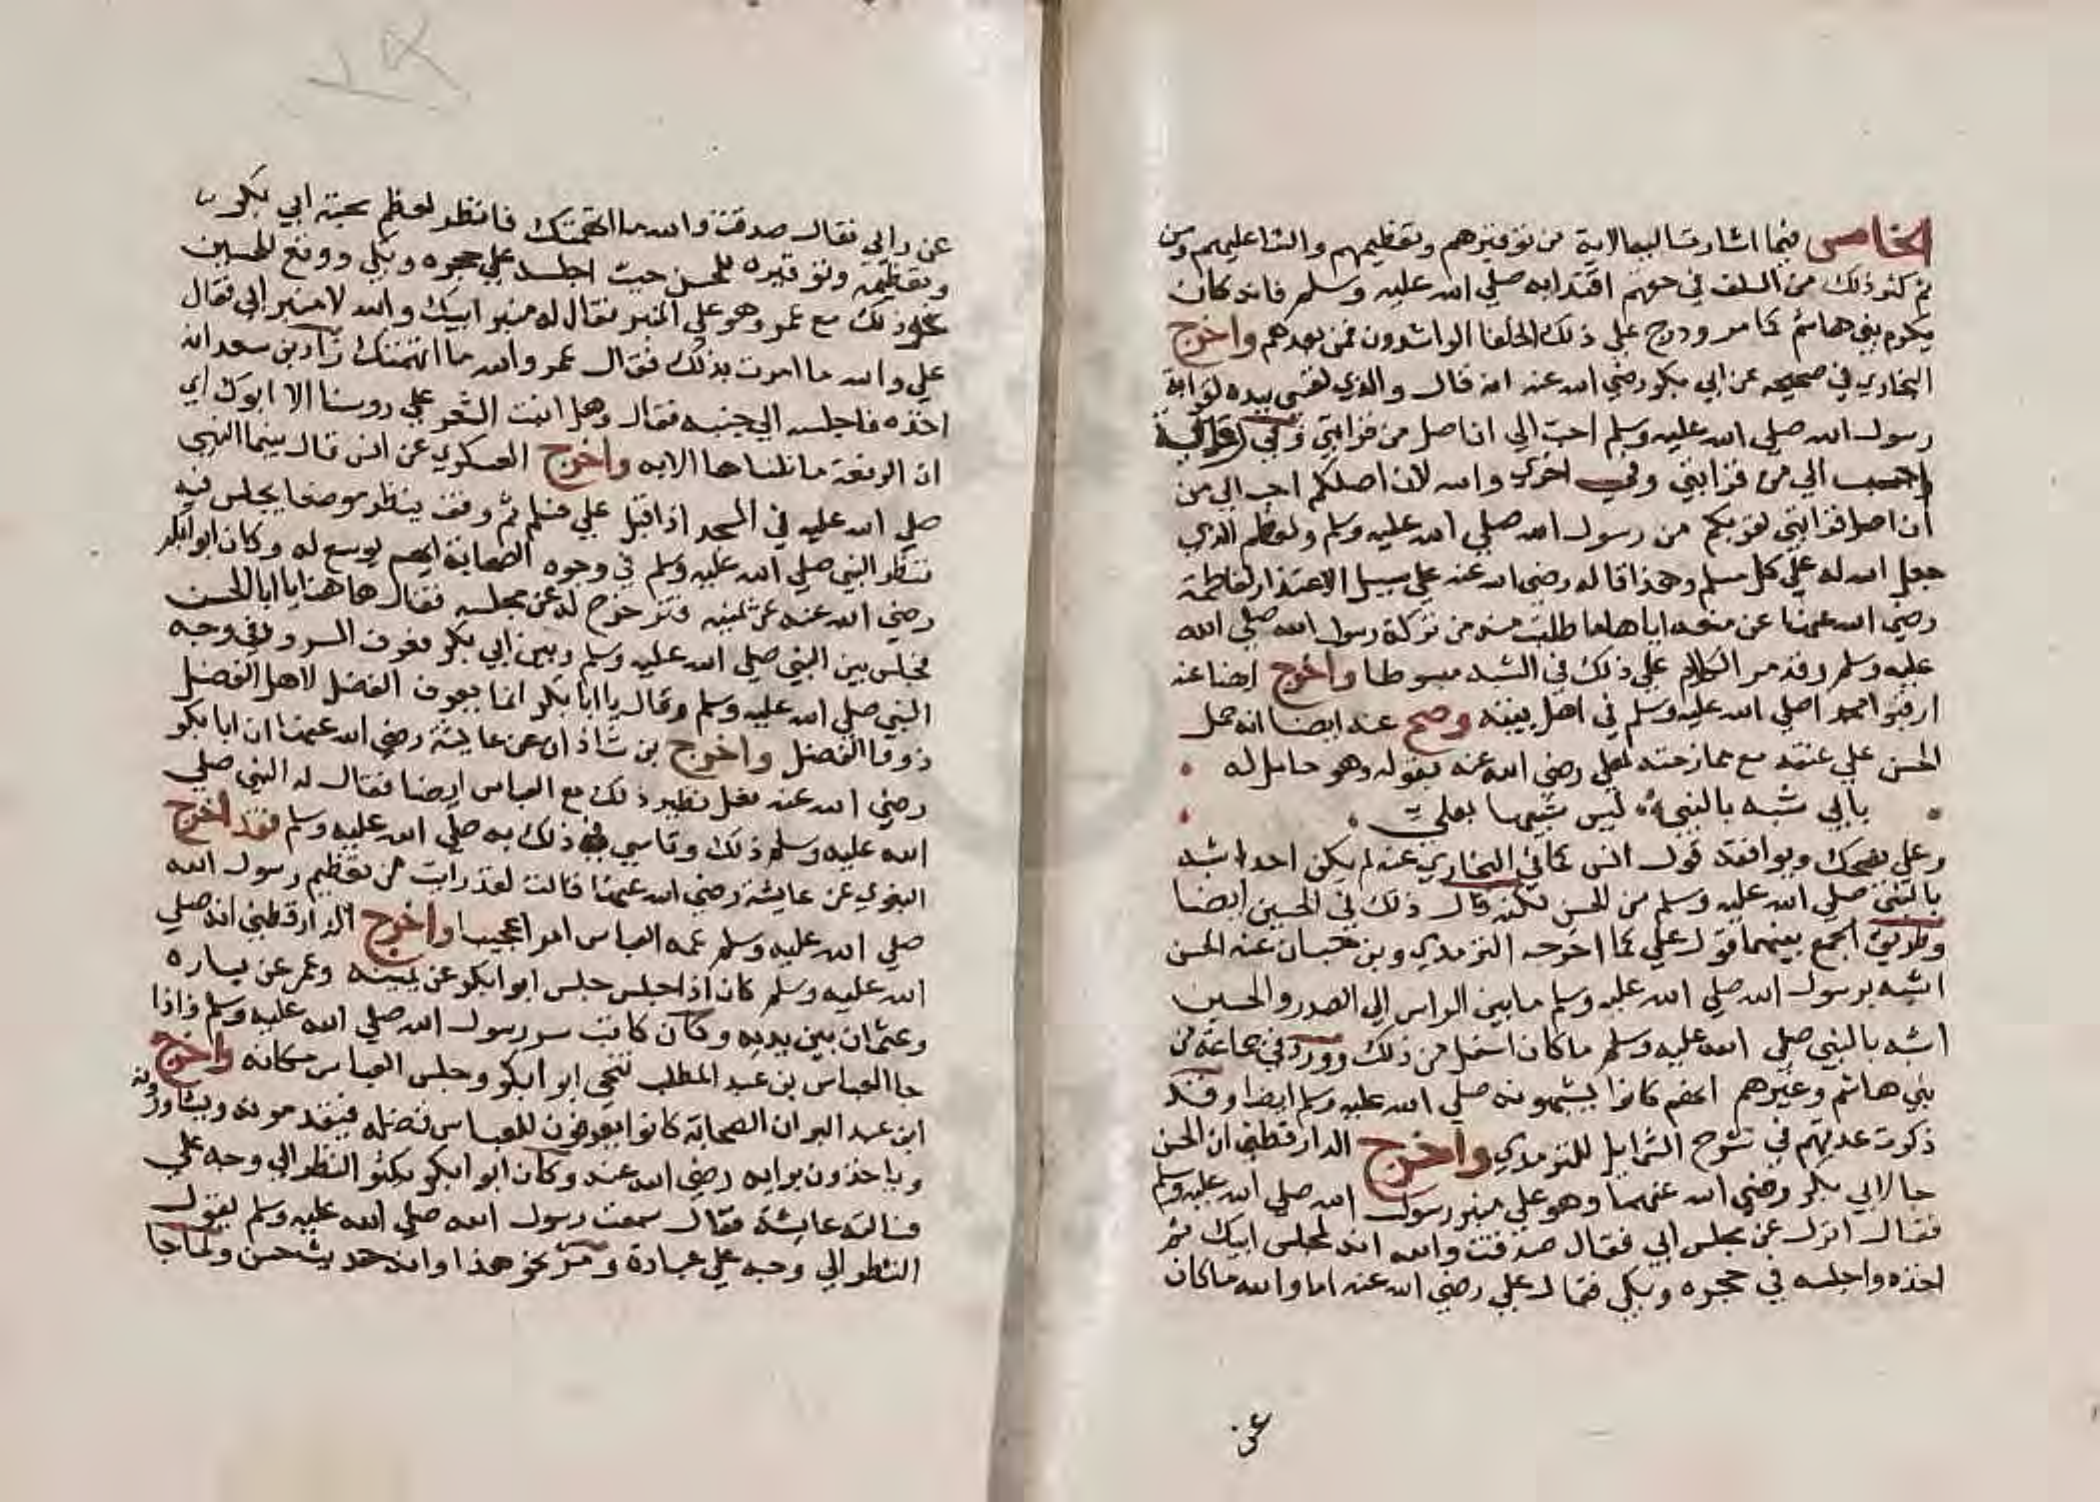 الخامس فيما اشارت اليه الاية من توقيرهم وتعظيمهم والثنا عليهم ومن
ثم كثر ذلك من السلف في حقهم اقتدا به صلي الله عليه وسلم فانه كان
يكرم بني هاشم كما مر ودرج علي ذلك الخلفا الراشدون فمن بعدهم واخرج
البخاري في صحيحه عن ابي بكر رضي الله عنه انه قال والذي نفسي بيده لقرابة
رسول الله صلي الله عليه وسلم احب الي ان اصل من قرابتي وفي رواية
احب الي من قرابتي وفي اخري والله لان اصلكم احب الي من
ان اصل قرابتي لقربكم من رسول الله صلي الله عليه وسلم ولعظم الذي
جعل الله له علي كل مسلم وهذا قاله رضي الله عنه علي سبيل الاعتذار لفاطمة
رضي الله عنها عن منعه اياها ما طلبت منه من تركة رسول الله صلي الله
عليه وسلم وقد مر الكلام علي ذلك في الشبه مبسوطا واخرج ايضا عنه
ارقبوا محمدا صلي الله عليه وسلم في اهل بيته وصح عنه ايضا انه حمل
الحسن علي عنقه مع ممازحته لعلي رضي الله عنه بقوله وهو حامل له
بابي شبه بالنبي ليس شبيها بعلي
وعلي يضحك ويوافقه قول انس كما في البخاري عنه لم يكن احد اشبه
بالنبي صلي الله عليه وسلم من الحسن لكنه قال ذلك في الحسين ايضا
وطريق الجمع بينهما قول علي كما اخرجه الترمذي وبن حبان عنه الحسن
اشبه برسول الله صلي الله عليه وسلم ما بين الراس الي الصدر والحسين
اشبه بالنبي صلي الله عليه وسلم ما كان اسفل من ذلك وورد في جماعة من
بني هاشم وغيرهم انهم كانوا يشبهونه صلي الله عليه وسلم ايضا وقد
ذكرت عدتهم في شرح الشمايل للترمذي واخرج الدارقطني ان الحسن
جا لابي بكر رضي الله عنهما وهو علي منبر رسول الله صلي الله عليه وسلم
فقال انزل عن مجلس ابي فقال صدقت والله انه لمجلس ابيك ثم
اخذه واجلسه في حجره وبكي فقال علي رضي الله عنه اما والله ما كان
عن
عن رايي فقال صدقت والله ما اتهمتك فانظر لعظم محبة ابي بكر
وتعظيمه وتوقيره للحسن حيث اجلسه علي حجره وبكي ووقع للحسين
ذلك مع عمر وهو علي المنبر فقال له منبر ابيك والله لا منبر ابي فقال
علي والله ما امرت بذلك فقال عمر والله ما اتهمتك زاد بن سعد انه
اخذه فاجلسه الي جنبه فقال وهل انبت الشعر علي روسنا الا ابوك اي
ان الرفعة ما نلناها الا به واخرج العسكري عن انس قال بينما النبي
صلي الله عليه في المسجد اذ اقبل علي فسلم ثم وقف ينظر موضعا يجلس فيه
فنظر النبي صلي الله عليه وسلم في وجوه الصحابة ايهم يوسع له وكان ابو بكر
رضي الله عنه عن يمينه فتزحزح له عن مجلسه فقال هاهنا يا ابا الحسن
فجلس بين النبي صلي الله عليه وسلم وبين ابي بكر فعرف السرور في وجه
النبي صلي الله عليه وسلم وقال يا ابا بكر انما يعرف الفضل لاهل الفضل
ذووا الفضل واخرج بن شاذان عن عايشة رضي الله عنها ان ابا بكر
رضي الله عنه فعل نظير ذلك مع العباس ايضا فقال له النبي صلي
الله عليه وسلم ذلك وقاسي ذلك به صلي الله عليه وسلم فقد اخرج
البغوي عن عايشة رضي الله عنها قالت لقد رايت من تعظيم رسول الله
صلي الله عليه وسلم عمه العباس امرا عجيبا واخرج الدارقطني انه صلي
الله عليه وسلم كان اذا جلس جلس ابو بكر عن يمينه وعمر عن يساره
وعثمان بين يديه وكان كاتب سر رسول الله صلي الله عليه وسلم فاذا
جا العباس بن عبد المطلب تنحي ابو بكر وجلس العباس مكانه واخرج
ابن عبد البر ان الصحابة كانوا يعرفون للعباس فضله فيقدمونه ويشاورونه
وياخذون برايه رضي الله عنه وكان ابو بكر يكثر النظر الي وجه علي
فسالته عايشة فقال سمعت رسول الله صلي الله عليه وسلم يقول
النظر الي وجه علي عبادة ومر نحو هذا وانه حديث حسن ولما جا